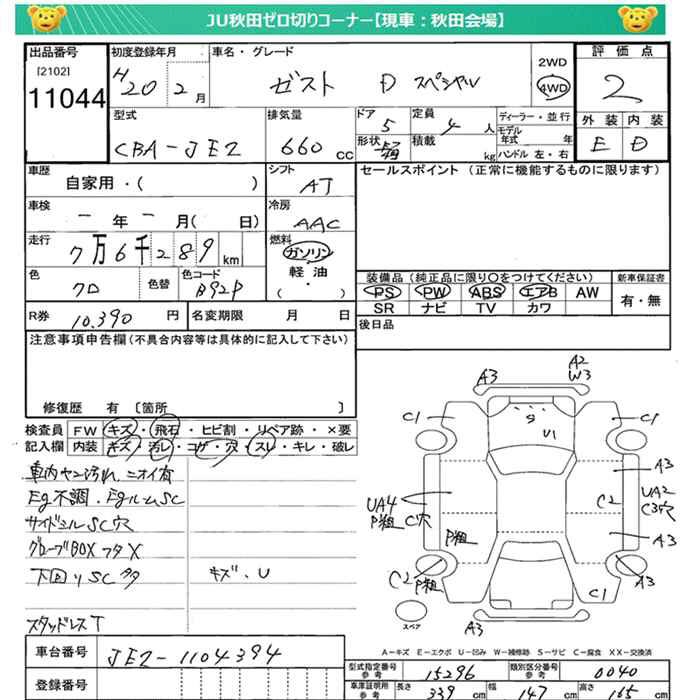 JU秋田ゼロ切りコーナー【現車：秋田会場】
出品番号 初度登録年月 車名・グレード 2WD 評価点
[2102]
11044 H20 2月 ゼスト D スペシャル 4WD 2
型式 排気量 ドア 定員 ディーラー・並行 外装 内装
CBA-JE2 660 CC 5 4人 モデル年式 年 E D
形状 積載 kg ハンドル 左・右
車歴 シフト セールスポイント（正常に機能するものに限ります）
自家用・( ) AT
車検 冷房
一年一月( 日) AAC
走行 燃料
7万6千289km ガソリン
軽油
・
( )
色 色替 色コード
クロ B92P
装備品（純正品に限り○をつけてください） 新車保証書
PS PW ABS エアB AW 有・無
SR ナビ TV カワ
R券 10,390円 名変期限 月 日
後日品
注意事項申告欄（不具合内容等は具体的に記入して下さい）
修復歴 有 〔箇所 〕
検査員 FW キズ・飛石・ヒビ割・リペア跡・×要
記入欄 内装 キズ・汚レ・コゲ・穴・スレ・キレ・破レ
車内ヤニ汚れ、ニオイ有
Eg不調、EgルームSC
サイドシルSC穴
グローブBOXフタX
下回りSC多 キズ、U
スタッドレスT
A3
A2
W3
C1
C1
S
U1
A3
UA4
P粗
C穴
C2
UA2
C3穴
P粗
A3
C2
P粗
A3
C1
スペア
A3
A－キズ E－エクボ U－凹み W－補修跡 S－サビ C－腐食 XX－交換済
車台番号 JE2-1104394
登録番号
型式指定番号 参考 15296 類別区分番号 参考 0040
車庫証明用 参考 長さ 339 cm 幅 147 cm 高さ 165 cm